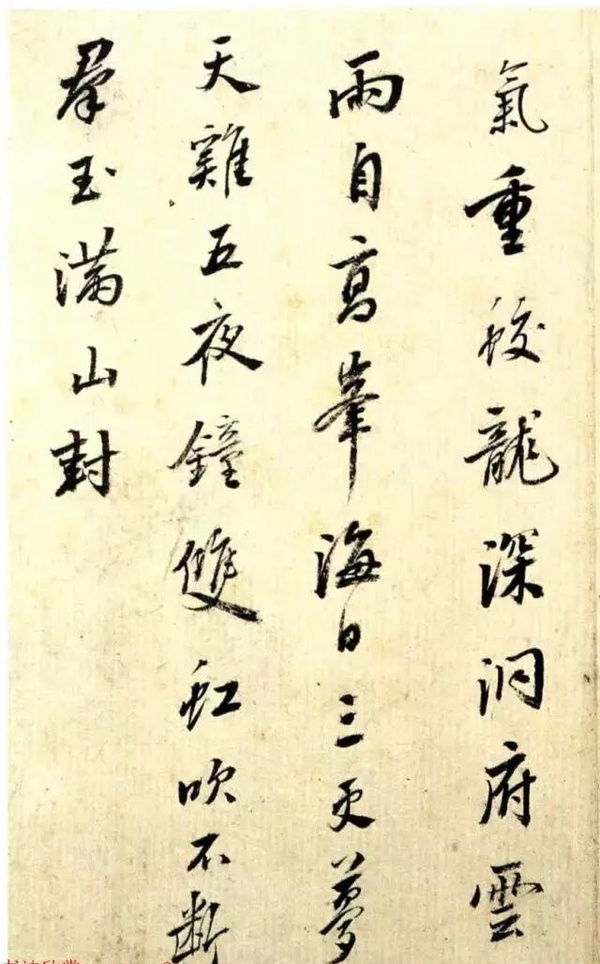 氣重蛟龍深洞府雲
雨自高峯海日三更夢
天雞五夜鐘雙虹吹不斷
羣玉滿山封